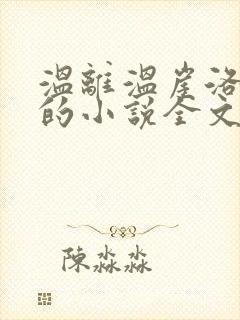 溫離溫崖洛
的小說全文
陳淼淼